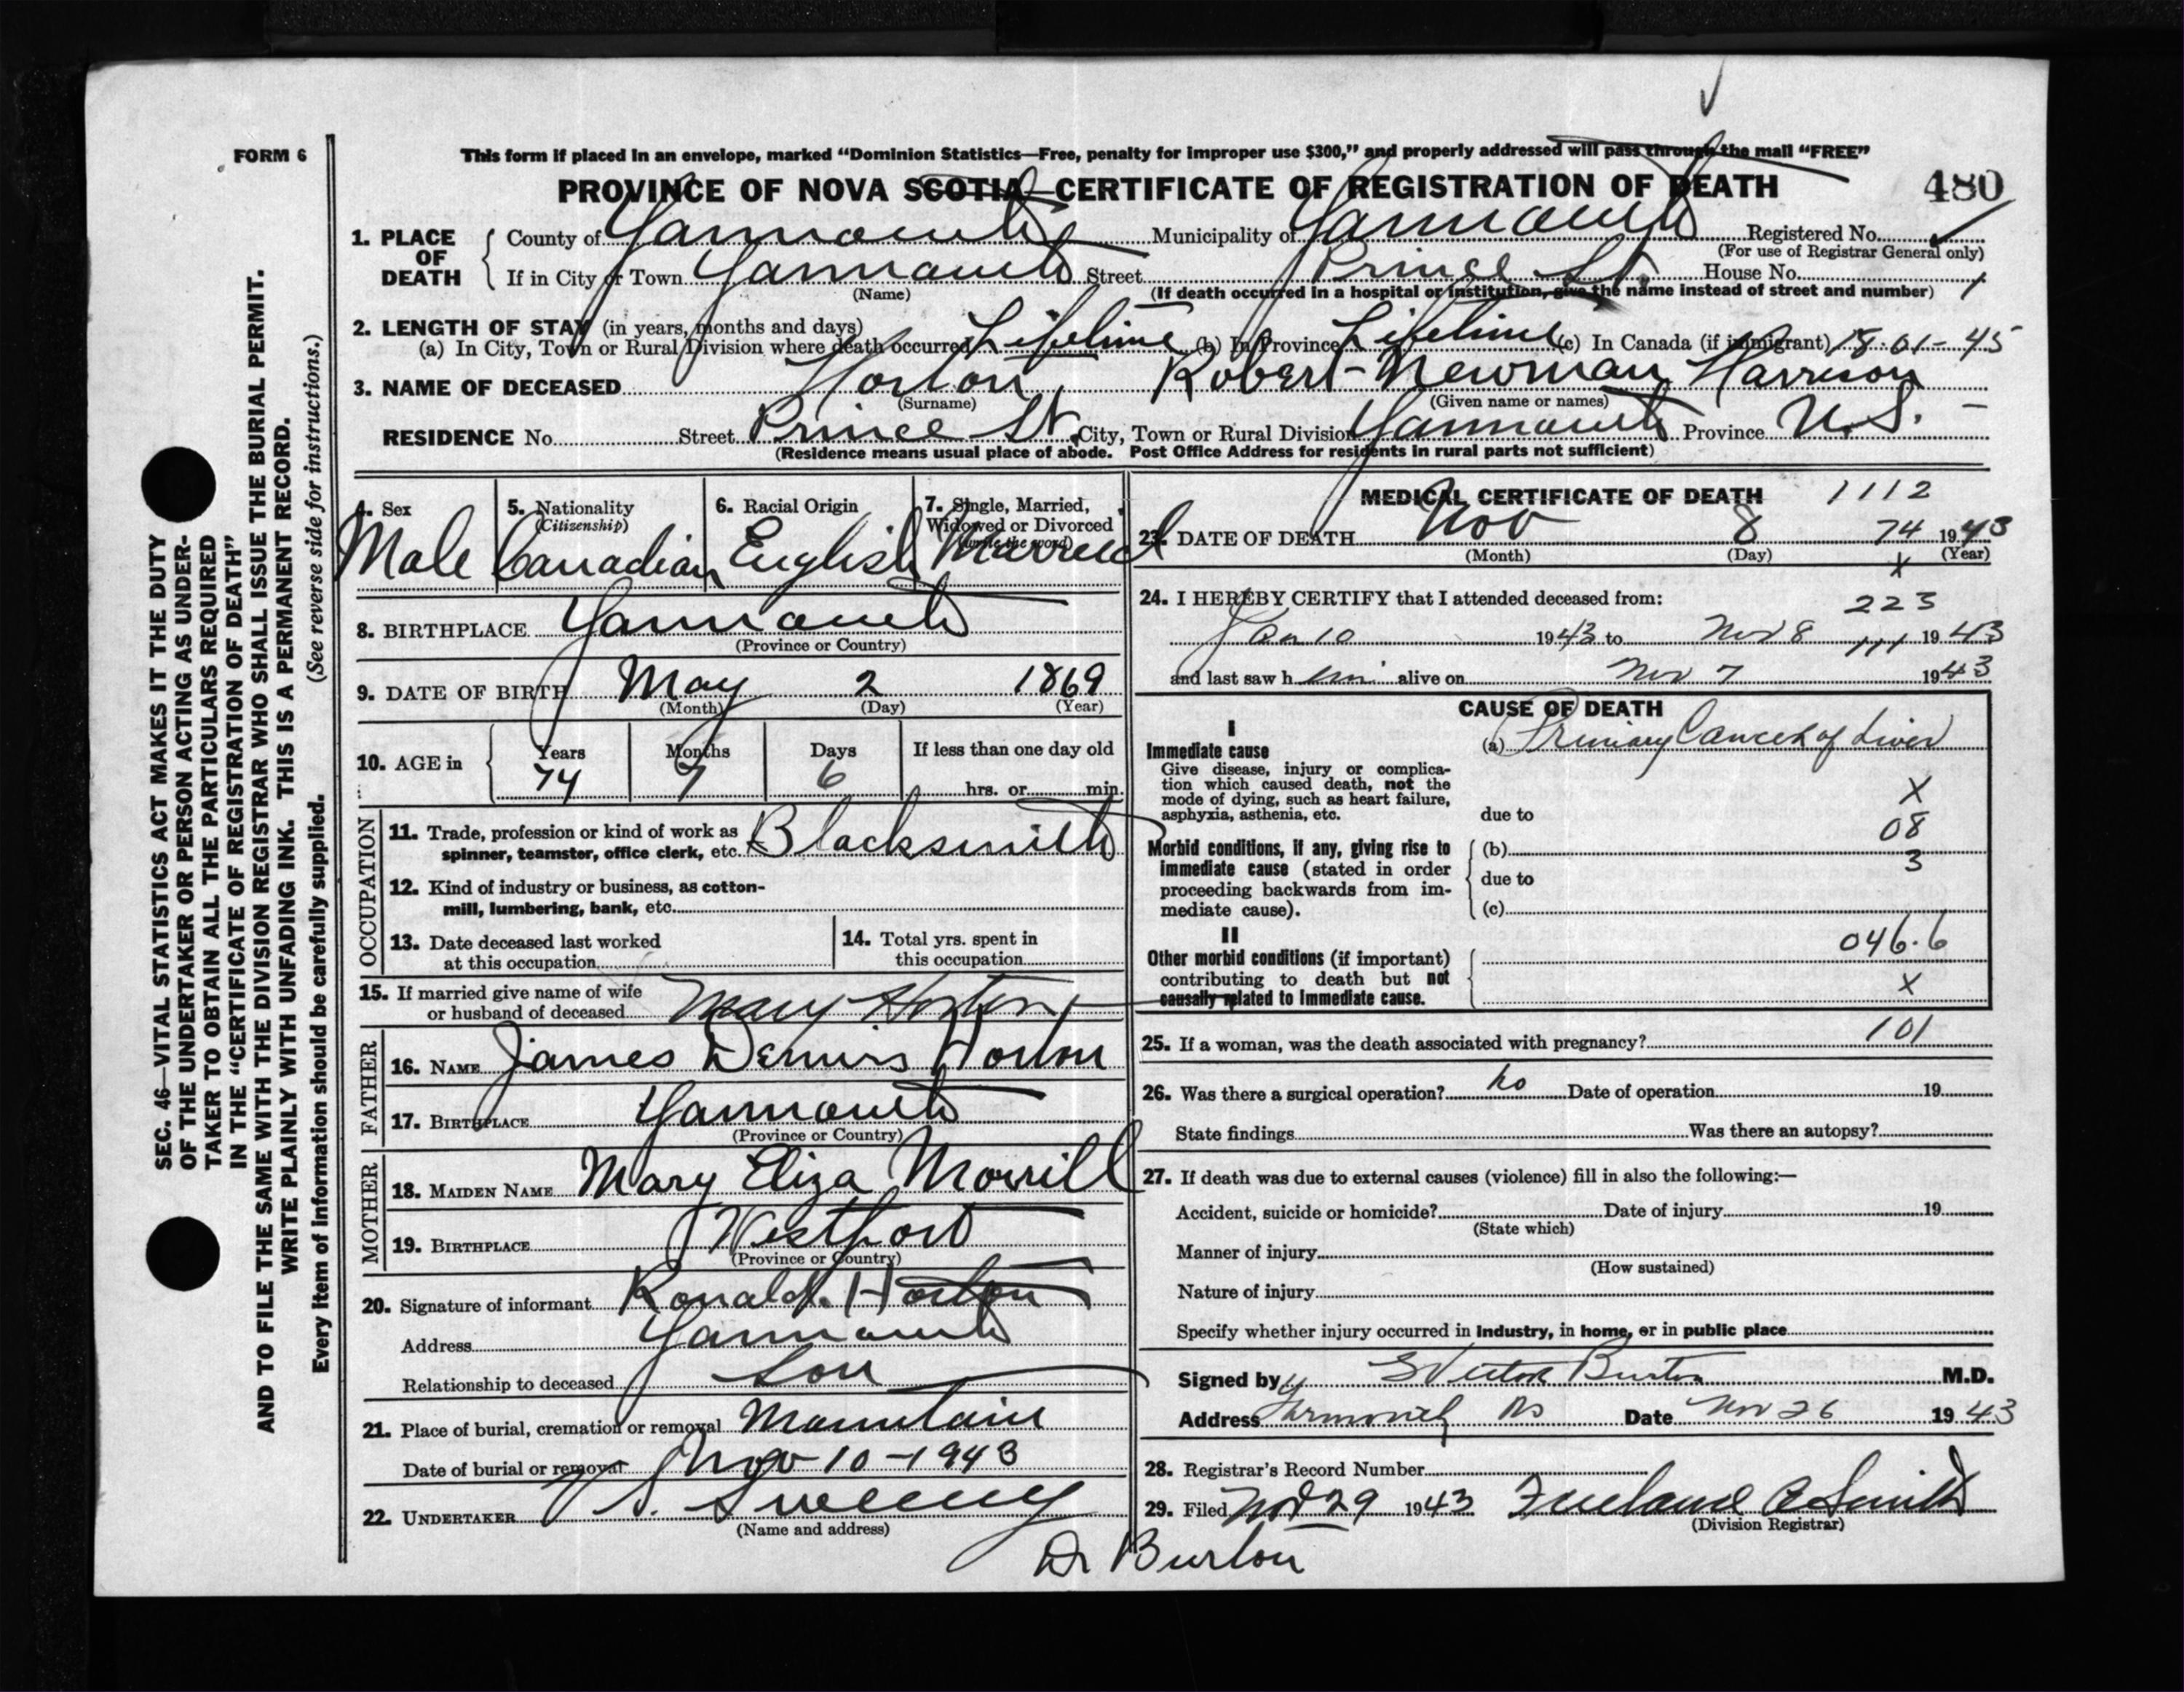 FORM 6
This form if placed in an envelope, marked "Dominion Statistics—Free, penalty for improper use $300," and properly addressed will pass through the mail "FREE"
PROVINCE OF NOVA SCOTIA—CERTIFICATE OF REGISTRATION OF DEATH 480
1. PLACE OF DEATH County of Yarmouth Municipality of Yarmouth Registered No.
(For use of Registrar General only)
If in City or Town Yarmouth Street Prince St. House No.
(Name) (If death occurred in a hospital or institution, give the name instead of street and number) 1
2. LENGTH OF STAY (in years, months and days)
(a) In City, Town or Rural Division where death occurred Lifetime (b) In Province Lifetime (c) In Canada (if immigrant) 18-01-45
3. NAME OF DECEASED Horton, Robert-Newman Harrison
(Surname) (Given name or names)
RESIDENCE No. Street Prince St. City, Town or Rural Division Yarmouth Province N.S.
(Residence means usual place of abode. Post Office Address for residents in rural parts not sufficient)
4. Sex 5. Nationality 6. Racial Origin 7. Single, Married,
(Citizenship) Widowed or Divorced
(write the word)
Male Canadian English Married
8. BIRTHPLACE Yarmouth
(Province or Country)
9. DATE OF BIRTH May 2 1869
(Month) (Day) (Year)
10. AGE in Years Months Days If less than one day old
74 7 6 hrs. or min.
OCCUPATION
11. Trade, profession or kind of work as
spinner, teamster, office clerk, etc. Blacksmith
12. Kind of industry or business, as cotton-
mill, lumbering, bank, etc.
13. Date deceased last worked
at this occupation
14. Total yrs. spent in
this occupation
15. If married give name of wife
or husband of deceased Mary Horton
FATHER
16. NAME James Dennis Horton
17. BIRTHPLACE Yarmouth
(Province or Country)
MOTHER
18. MAIDEN NAME Mary Eliza Morrill
19. BIRTHPLACE Westport
(Province or Country)
20. Signature of informant Ronald Horton
Address Yarmouth
Relationship to deceased Son
21. Place of burial, cremation or removal Mountain
Date of burial or removal Nov 10-1943
22. UNDERTAKER V. S. Sweeney
(Name and address)
MEDICAL CERTIFICATE OF DEATH 1112
23. DATE OF DEATH Nov 8 74 1943
(Month) (Day) (Year)
X
24. I HEREBY CERTIFY that I attended deceased from:
223
Jan 10 1943 to Nov 8 111 1943
and last saw him alive on Nov 7 1943
CAUSE OF DEATH
I
Immediate cause (a) Primary Cancer of Liver
Give disease, injury or complica-
tion which caused death, not the
mode of dying, such as heart failure,
asphyxia, asthenia, etc.
X
due to
08
Morbid conditions, if any, giving rise to (b)
3
immediate cause (stated in order due to
proceeding backwards from im-
mediate cause). (c)
II
046.6
Other morbid conditions (if important)
contributing to death but not X
causally related to immediate cause.
101
25. If a woman, was the death associated with pregnancy?
26. Was there a surgical operation? no Date of operation 19
State findings Was there an autopsy?
27. If death was due to external causes (violence) fill in also the following:—
Accident, suicide or homicide? Date of injury 19
(State which)
Manner of injury
(How sustained)
Nature of injury
Specify whether injury occurred in industry, in home, or in public place
Signed by Victor Burton M.D.
Address Yarmouth NS Date Nov 26 1943
28. Registrar's Record Number
29. Filed Nov 29 1943 Smith
(Division Registrar)
Dr Burton
SEC. 46—VITAL STATISTICS ACT MAKES IT THE DUTY
OF THE UNDERTAKER OR PERSON ACTING AS UNDER-
TAKER TO OBTAIN ALL THE PARTICULARS REQUIRED
IN THE "CERTIFICATE OF REGISTRATION OF DEATH"
AND TO FILE THE SAME WITH THE DIVISION REGISTRAR WHO SHALL ISSUE THE BURIAL PERMIT.
WRITE PLAINLY WITH UNFADING INK. THIS IS A PERMANENT RECORD.
Every item of information should be carefully supplied. (See reverse side for instructions.)